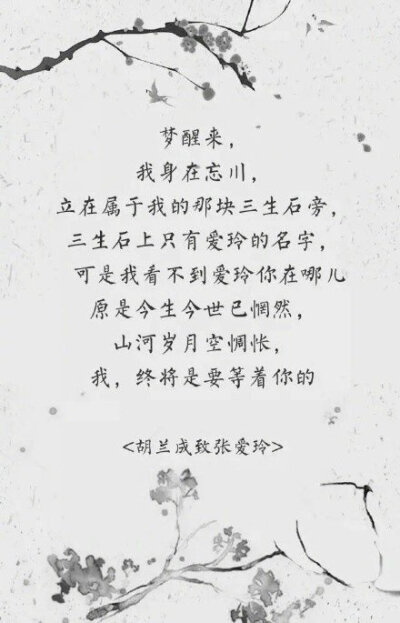 梦醒来，
我身在忘川，
立在属于我的那块三生石旁，
三生石上只有爱玲的名字，
可是我看不到爱玲你在哪儿
原是今生今世已惘然，
山河岁月空惆怅，
我，终将是要等着你的
<胡兰成致张爱玲>